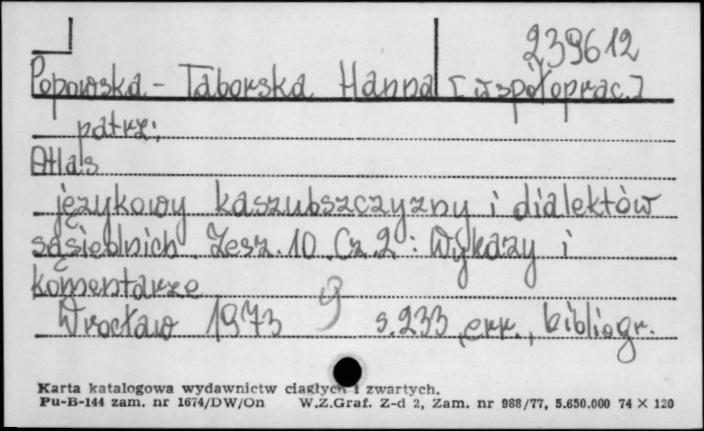 239612
Popowska-Taborska Hanna [współoprac.]
patrz:
Atlas
językowy kaszubszczyzny i dialektów
sąsiednich. Zesz. 10. Cz. 2: Wykazy i
komentarze
Wrocław 1973 s. 233, err., bibliogr.
Karta katalogowa wydawnictw ciągłych i zwartych.
Pu-B-144 zam. nr 1674/DW/On W.Z.Graf. Z-d 2, Zam. nr 988/77, 5.650.000 74 × 120